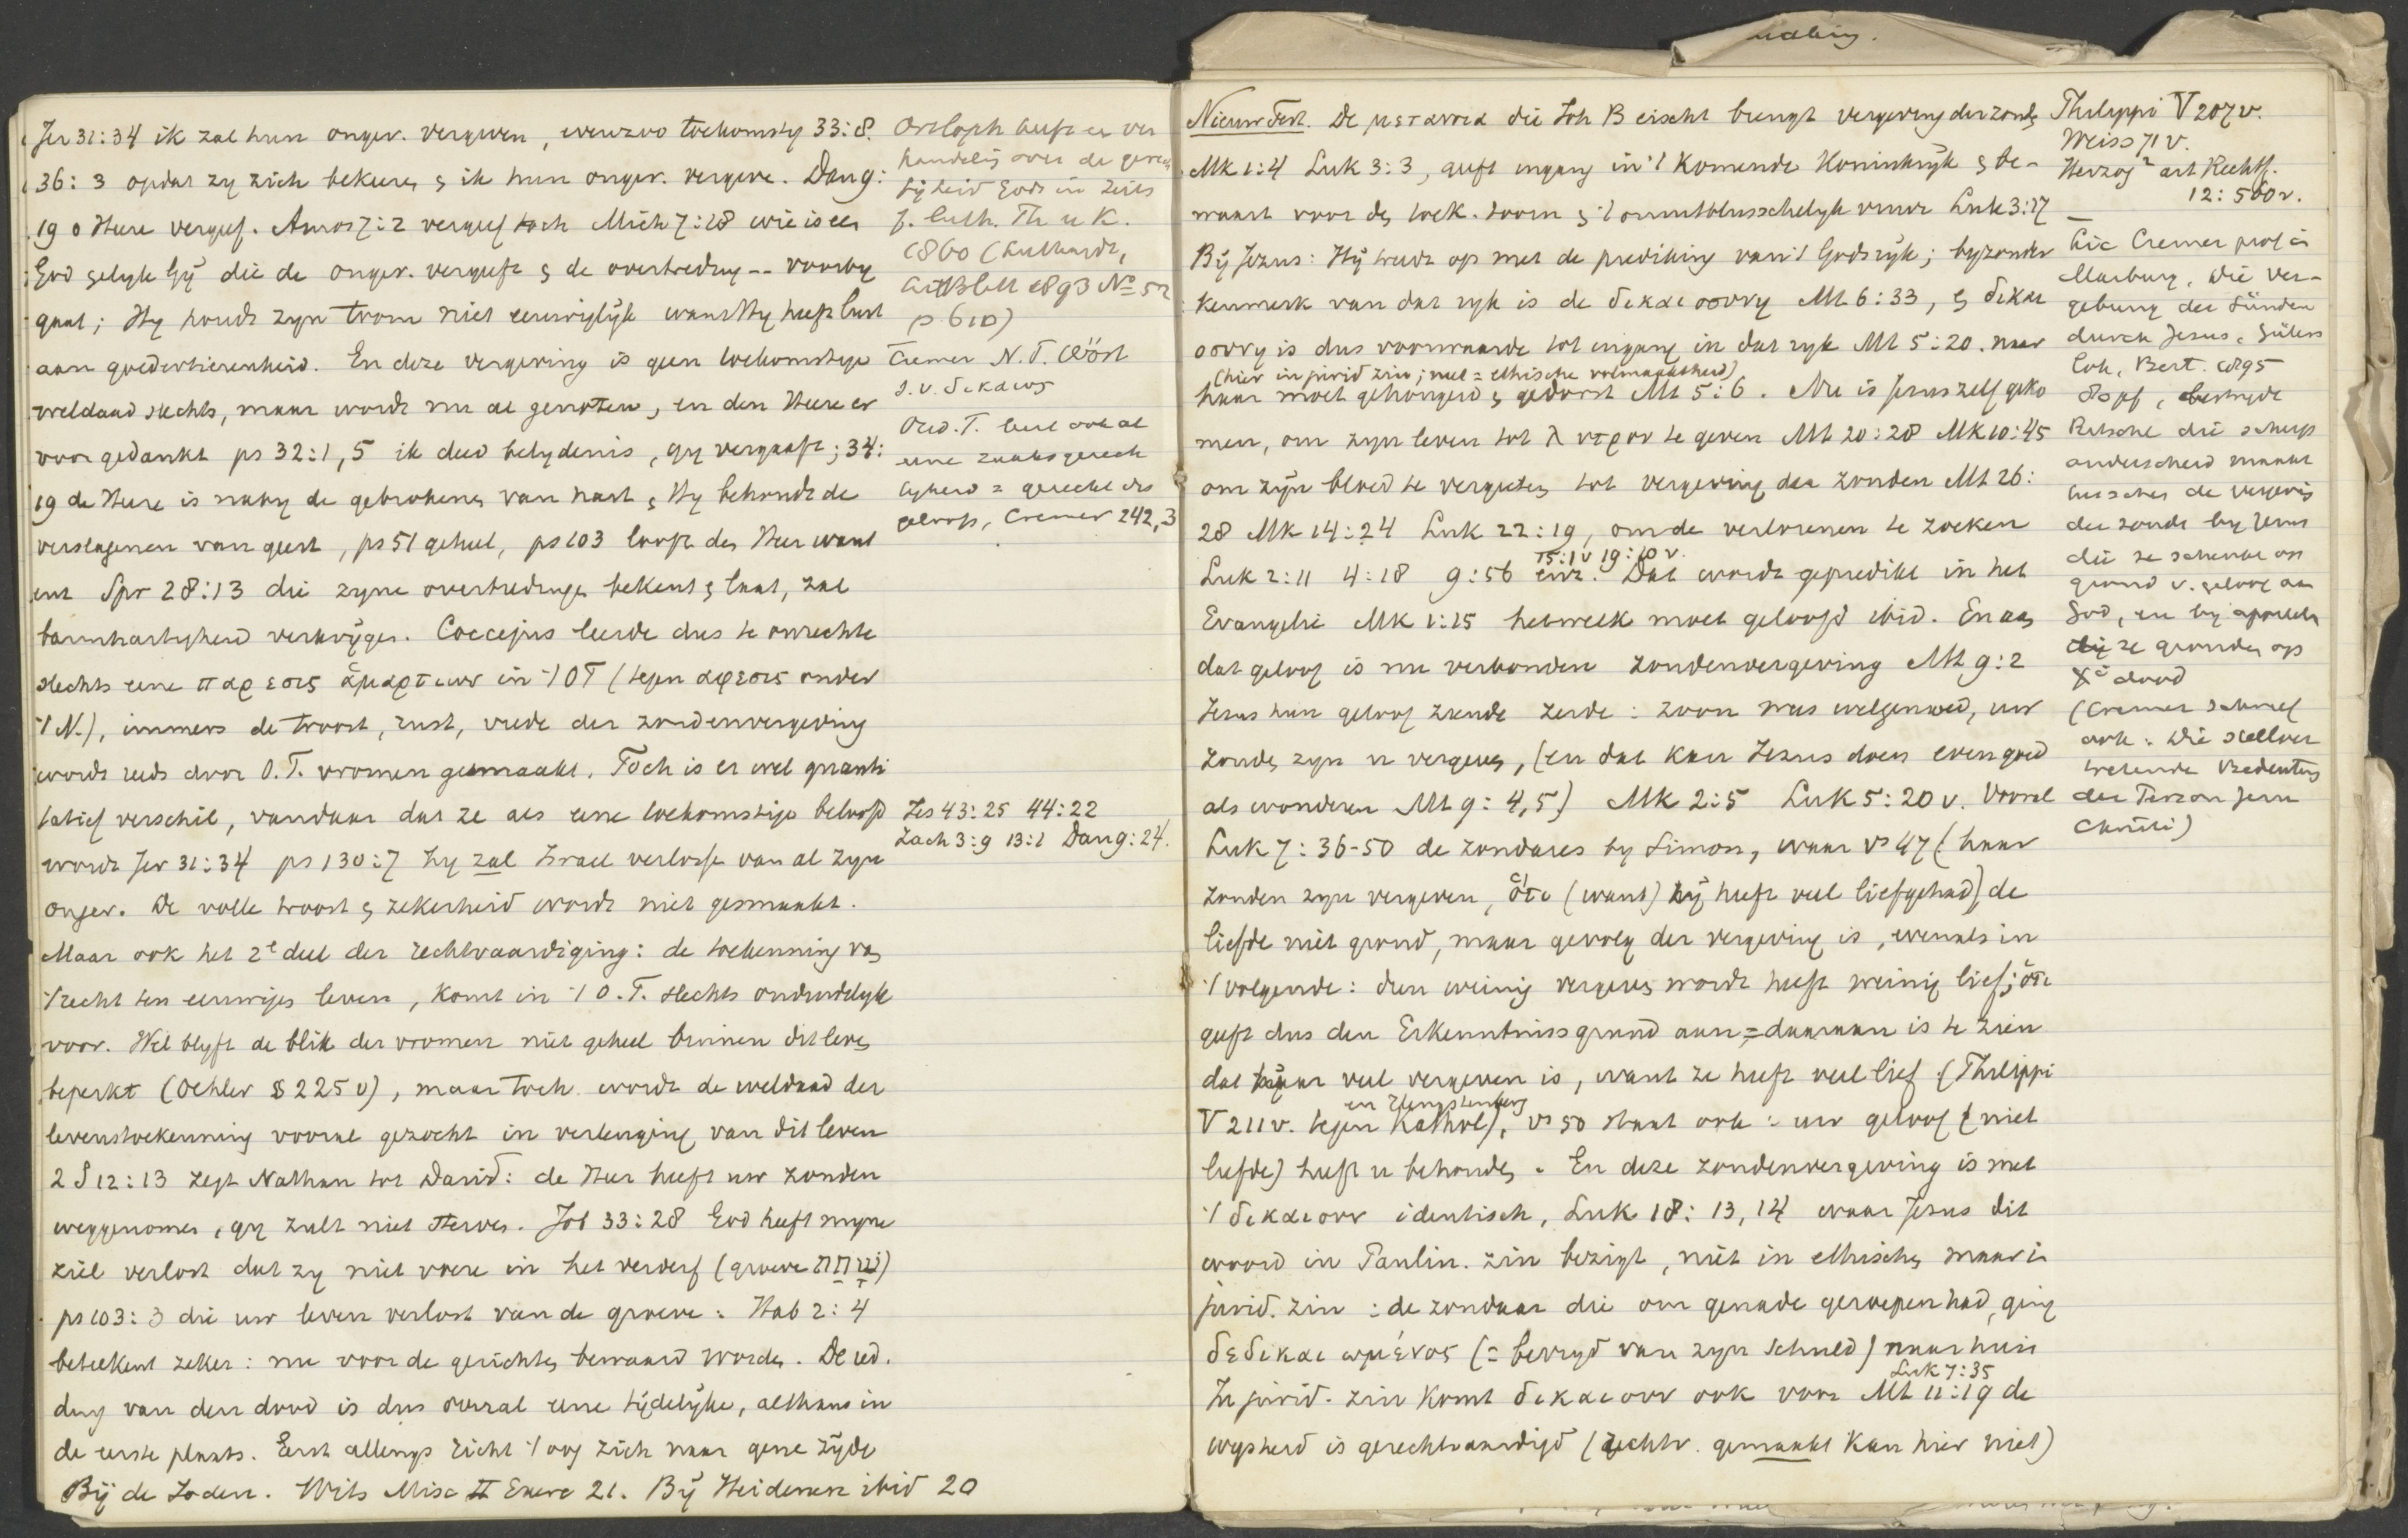 Jer 31:34 ik zal hun onger. vergeven, evenzoo toekomstig 33:8.
36:3 opdat zy zich bekeere, & ik hun onger. vergeve. Dan 9:
19 o Heere vergeef. Amos 7:2 vergeef toch Mich 7:18 wie is een
God gelyk Gij die de onger. vergeeft & de overtreding -- voorby
gaat; Hy houdt zyn toorn niet eeuwiglijk want Hy heeft lust
aan goedertierenheid. En deze vergeving is geen toekomstige
weldaad slechts, maar wordt nu al genoten, en den Heere er
voor gedankt ps 32:1,5 ik deed belydenis, gy vergaaft; 34:
19 de Heere is naby de gebrokenen van hart & Hy behoudt de
verslagenen van geest, ps 51 geheel, ps 103 looft den Heer want
ent Spr 28:13 die zyne overtredingen bekent & laat, zal
barmhartigheid verkrijgen. Coccejus leerde dus te onrechte
slechts eene παρεσις ἁμαρτιων in 't OT (tegen αφεσις onder
't N.), immers de troost, rust, vrede der zondenvergeving
wordt reeds door O.T. vromen gesmaakt. Toch is er wel quanti
tatief verschil, vandaar dat ze als eene toekomstige beloofd
wordt Jer 31:34 ps 130:7 hy zal Israel verlosse van al zyn
onger. De volle troost & zekerheid wordt niet gesmaakt.
Maar ook het 2e deel der rechtvaardiging: de toekenning van
't recht ten eeuwigen leven, komt in 't O.T. slechts onduidelyk
voor. Wel blyft de blik der vromen niet geheel binnen dit leven
beperkt (Oehler § 225 v), maar toch wordt de weldaad der
levenstoekenning vooral gezocht in verlenging van dit leven
2 S 12:13 zegt Nathan tot David: de Heer heeft uw zonden
weggenomen, gy zult niet sterven. Job 33:28 God heeft myne
ziel verlost dat zy niet voere in het verderf (groeve שַׁחַת)
ps 103:3 die uw leven verlost van de groeve: Hab 2:4
beteekent zeker: nu voor de gerichten bewaard worden. De red.
ding van den dood is dus overal eene tijdelijke, althans in
de eerste plaats. Eerst allengs richt 't oog zich naar gene zijde
Bij de Joden. Wits Misc II Exerc 21. Bij Heidenen ibid 20
Ortloph heeft er ver
handeling over de gerech
tigheid Gods in Zeits
f. luth. Th u K.
1860 (Luthardt,
LittBlatt 1893 No 52
p 610)
Cremer N.T. Wört
s.v. δικαιος
Oud. T. leert ook al
eene zaaksgerech
tigheid = gerecht des
geloofs, Cremer 242,3
Jes 43:25 44:22
Zach 3:9 13:1 Dan 9:24.
Nieuw Test. De μετανοια die Joh B eischt brengt vergeving der zonde
Mk 1:4 Luk 3:3, geeft ingang in 't komende Koninkrijk & be-
waart voor den toek. toorn & 't onuitblusschelyk vuur Luk 3:17
Bij Jezus: Hij treedt op met de prediking van 't Godsrijk; byzonder
kenmerk van dat ryk is de δικαιοσυνη Mt 6:33, & δικαι
οσυνη is dus voorwaarde tot ingang in dat ryk Mt 5:20. naar
(hier in jurid zin; neel = ethische volmaaktheid)
haar moet gehongerd & gedorst Mt 5:6. Nu is Jezus zelf geko
men, om zyn leven tot λυτρον te geven Mt 20:28 Mk 10:45
om zijn bloed te vergieten tot vergeving der zonden Mt 26:
28 Mk 14:24 Luk 22:19, om de verlorenen te zoeken
15:1v 19:10 v.
Luk 2:11 4:18 9:56 enz. Dat wordt gepredikt in het
Evangelie Mk 1:15 hetwelk moet geloofd ibid. En aan
dat geloof is nu verbonden zondenvergeving Mt 9:2
Jezus hun geloof ziende zeide: zoon wees welgemoed, uw
zonden zyn u vergeven, (en dat kan Jezus doen evengoed
als wonderen Mt 9:4,5) Mk 2:5 Luk 5:20 v. Vooral
Luk 7:36-50 de zondares by Simon, waar vs 47 (haar
zonden zyn vergeven, ὅτι (want) zij heeft veel liefgehad) de
liefde niet grond, maar gevolg der vergeving is, evenals in
't volgende: dien weinig vergeven wordt heeft weinig lief; ὅτι
geeft dus den Erkenntnissgrund aan = daaraan is te zien
dat haar veel vergeven is, want ze heeft veel lief (Philippi
en Hengstenberg
V 211 v. tegen Kathol), vs 50 staat ook: uw geloof (niet
liefde) heeft u behouden. En deze zondenvergeving is met
't δικαιουν identisch, Luk 18:13,14 waar Jezus dit
woord in Paulin. zin bezigt, niet in ethischen maar in
jurid. zin: de zondaar die om genade geroepen had, ging
δεδικαιωμένος (= bevryd van zyn schuld) naar huis
Luk 7:35
In jurid. zin komt δικαιουν ook voor Mt 11:19 de
wysheid is gerechtvaardigd (rechtv. gemaakt kan hier niet)
Philippi V 207 v.
Weiss 71 v.
Herzog² art Rechtf.
12:560 v.
Lic Cremer prof in
Marburg, Die Ver-
gebung der Sünden
durch Jesus, Güters
loh, Bert. 1895
80 pf, bestryde
Ritschl die scherp
onderscheid maakt
tusschen de vergevig
der zonde by Jezus
die ze schenkt op
grond v. geloof aan
God, en by apostels
die ze gronden op
Xs dood
(Cremer schreef
ook: Die stellver
tretende Bedeutung
der Person Jesu
Christi)